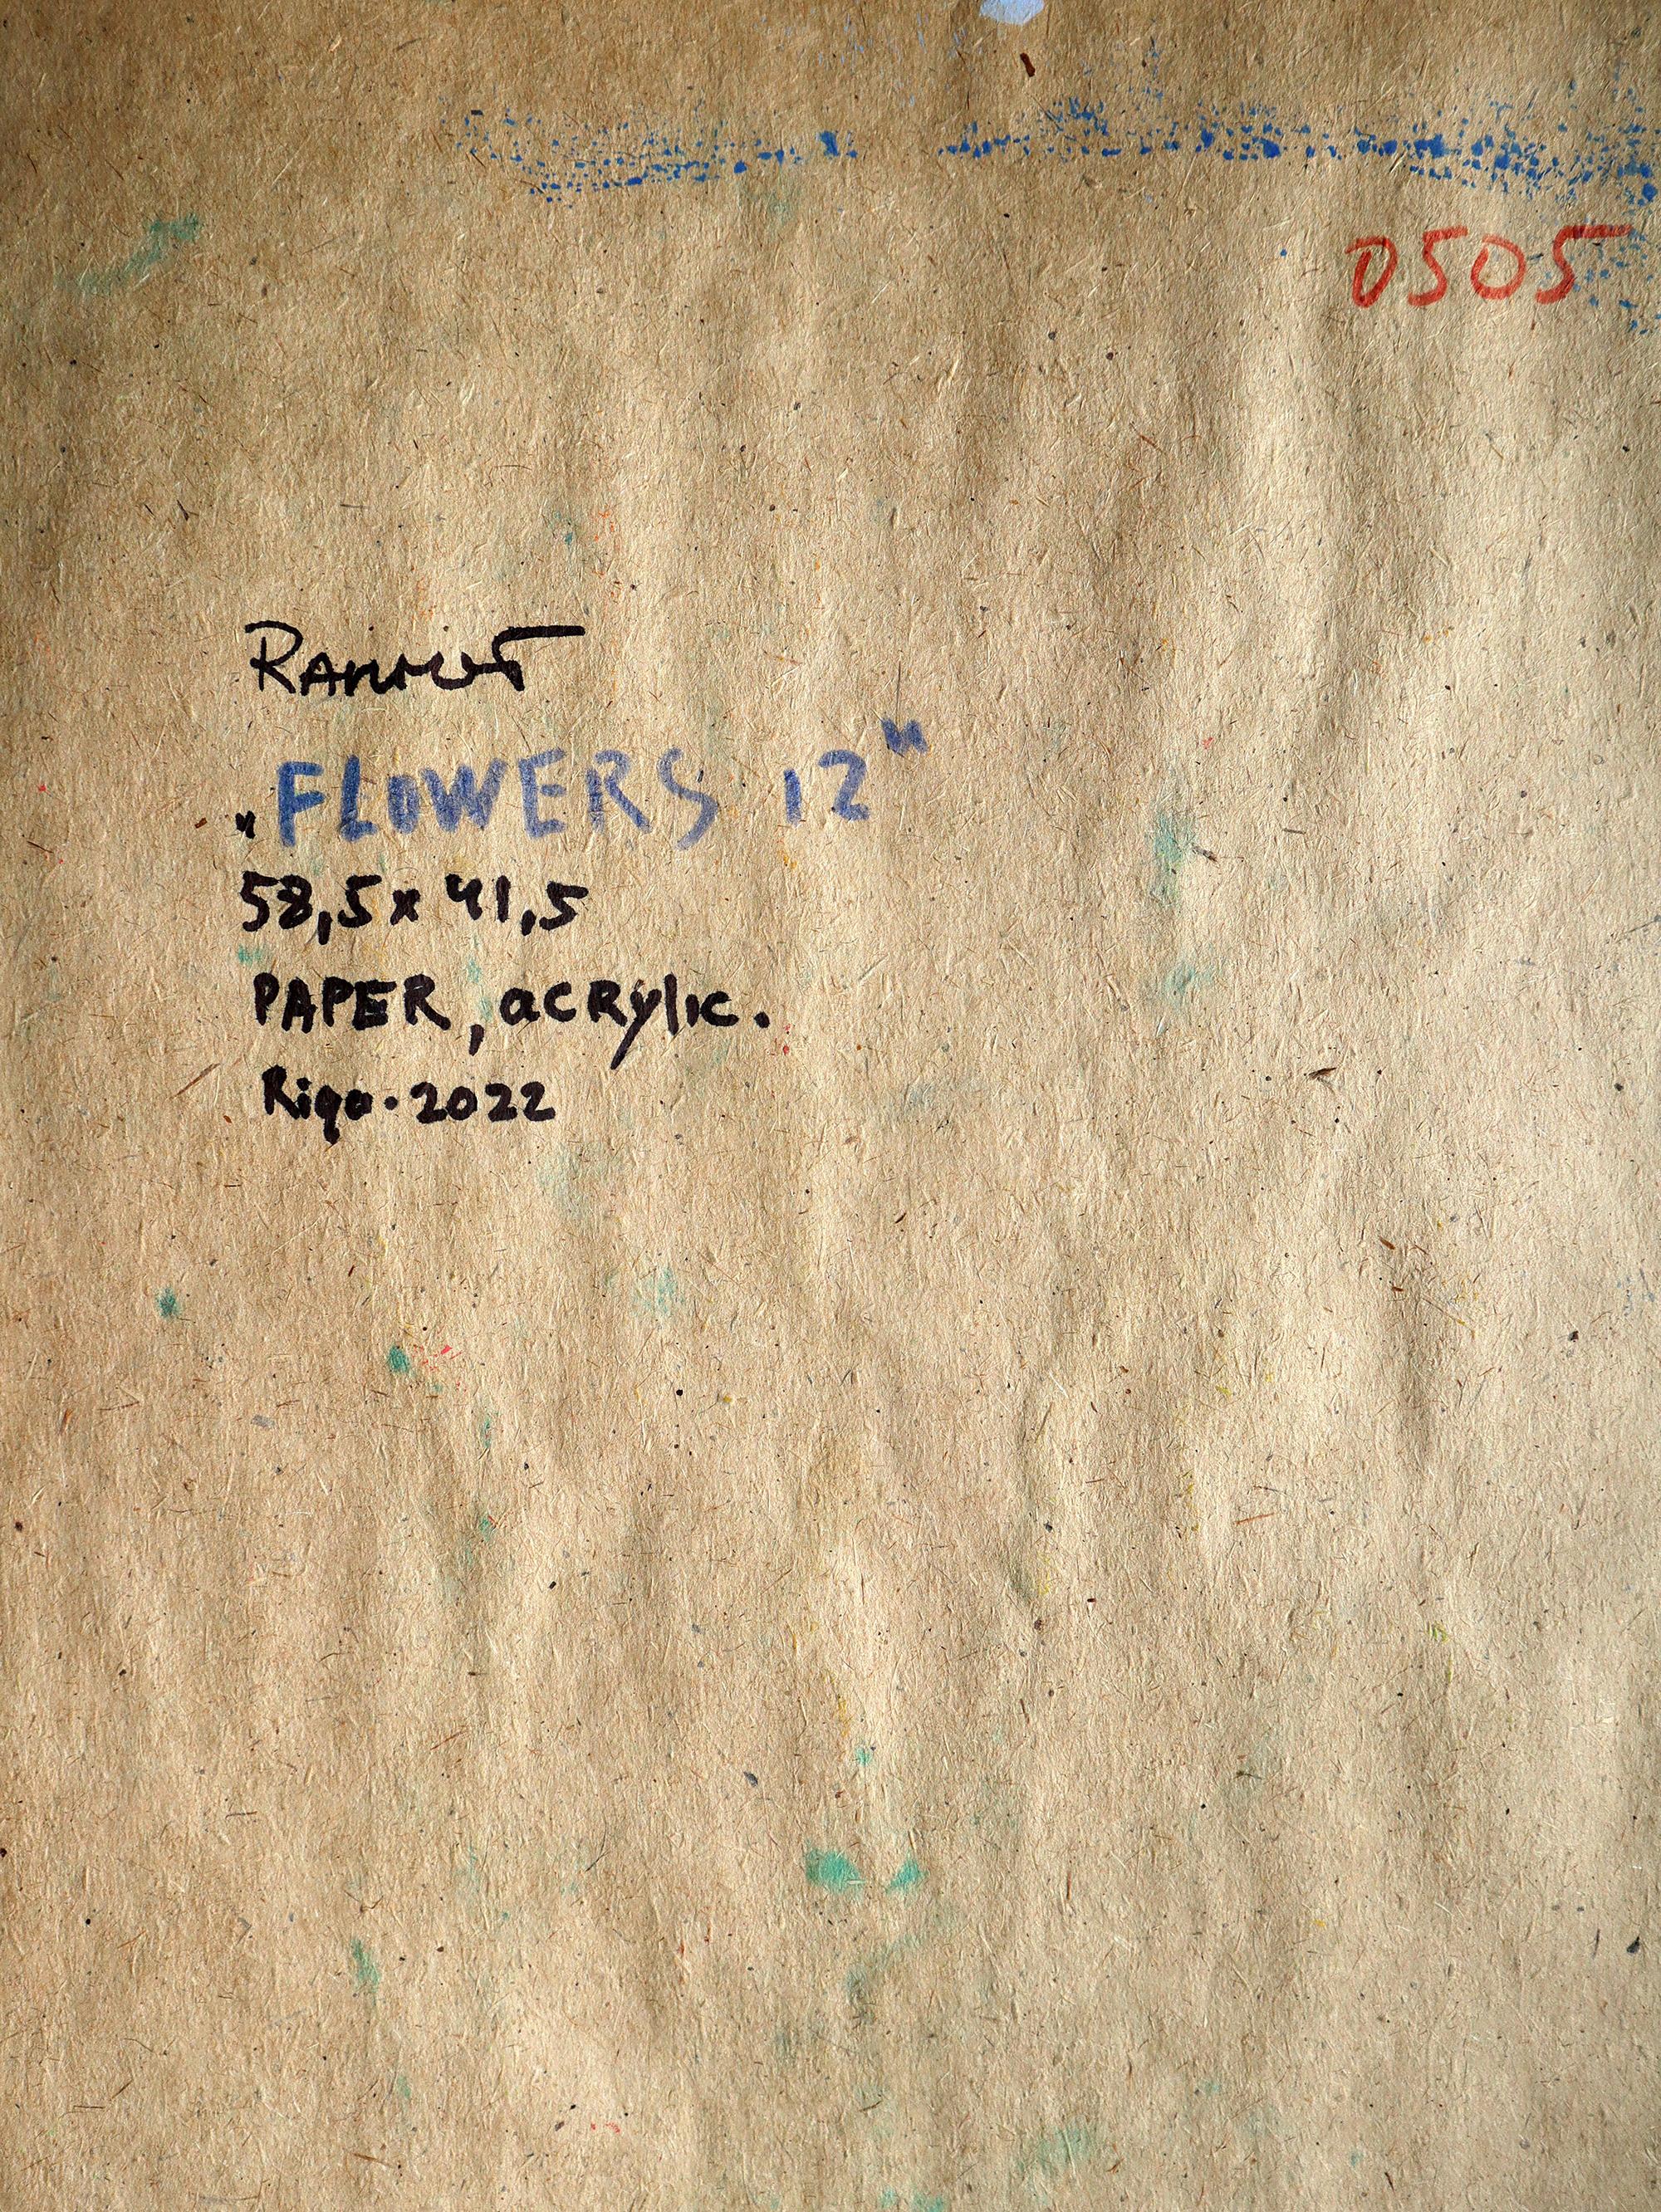 0505
„FLOWERS 12"
58,5 x 41,5
PAPER, acRylic.
Riga · 2022